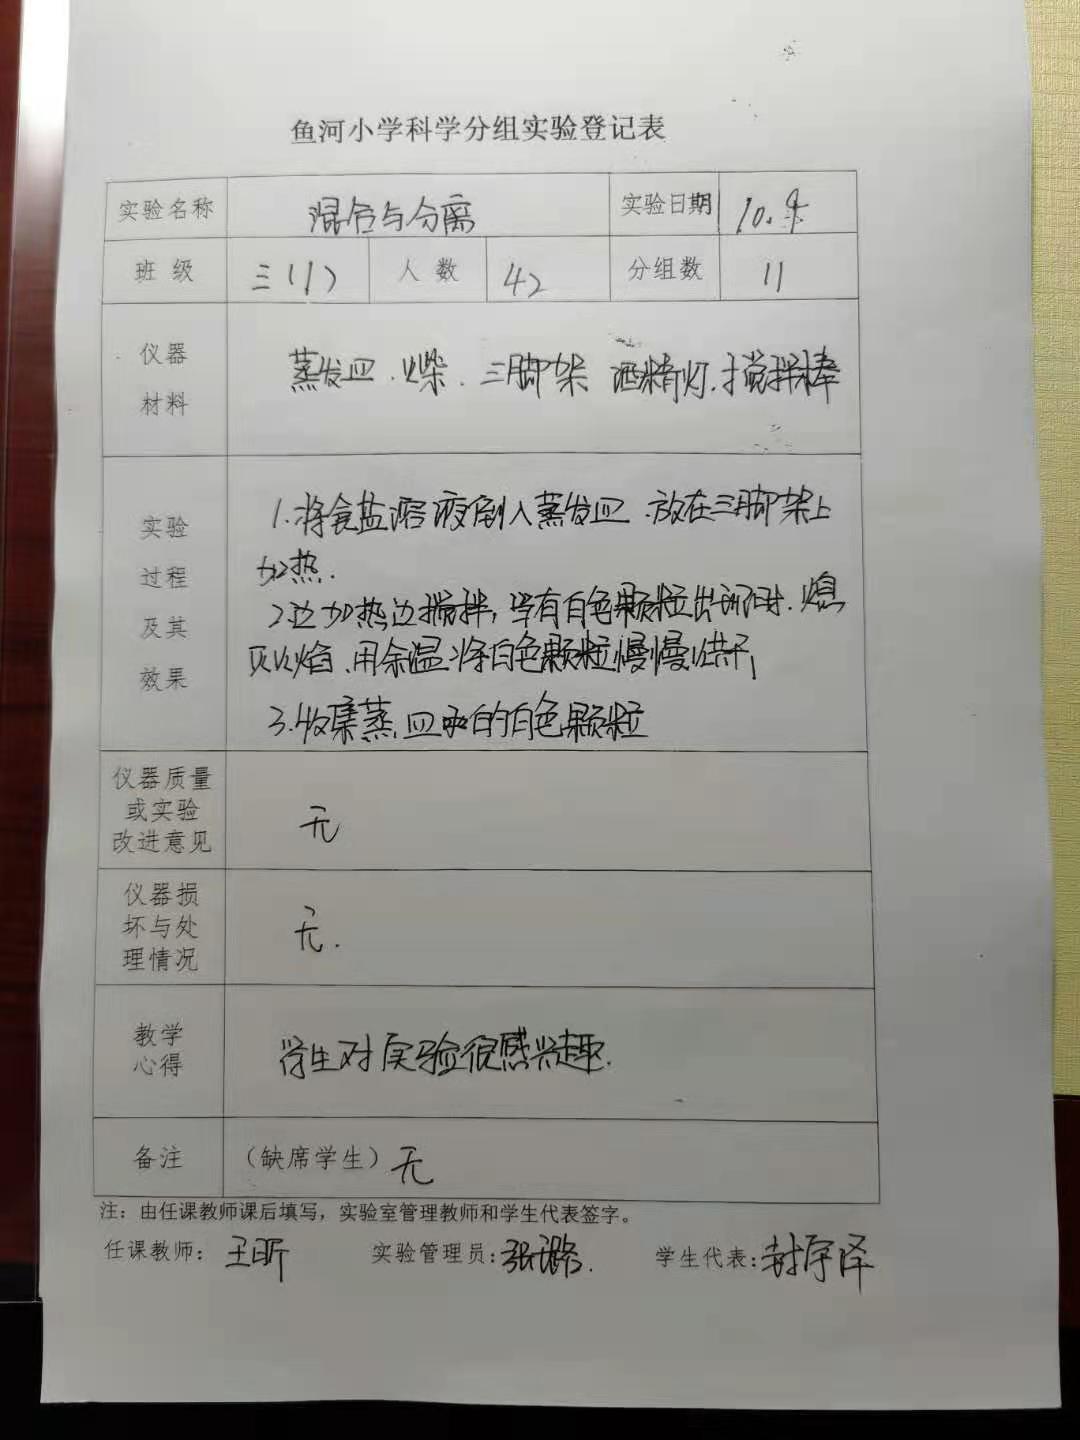 鱼河小学科学分组实验登记表
实验名称 混合与分离 实验日期 10.9
班 级 三(1) 人 数 42 分组数 11
仪器
材料
蒸发皿、火柴、三脚架 酒精灯、搅拌棒
实验
过程
及其
效果
1.将食盐溶液倒入蒸发皿、放在三脚架上
加热.
2边加热边搅拌,当有白色颗粒出现时、熄
灭火焰、用余温将白色颗粒慢慢烘干,
3.收集蒸皿中的白色颗粒
仪器质量
或实验
改进意见
无
仪器损
坏与处
理情况
无.
教学
心得
学生对实验很感兴趣.
备注 (缺席学生) 无
注:由任课教师课后填写,实验室管理教师和学生代表签字。
任课教师: 王昕 实验管理员: 张璐. 学生代表: 封宇泽